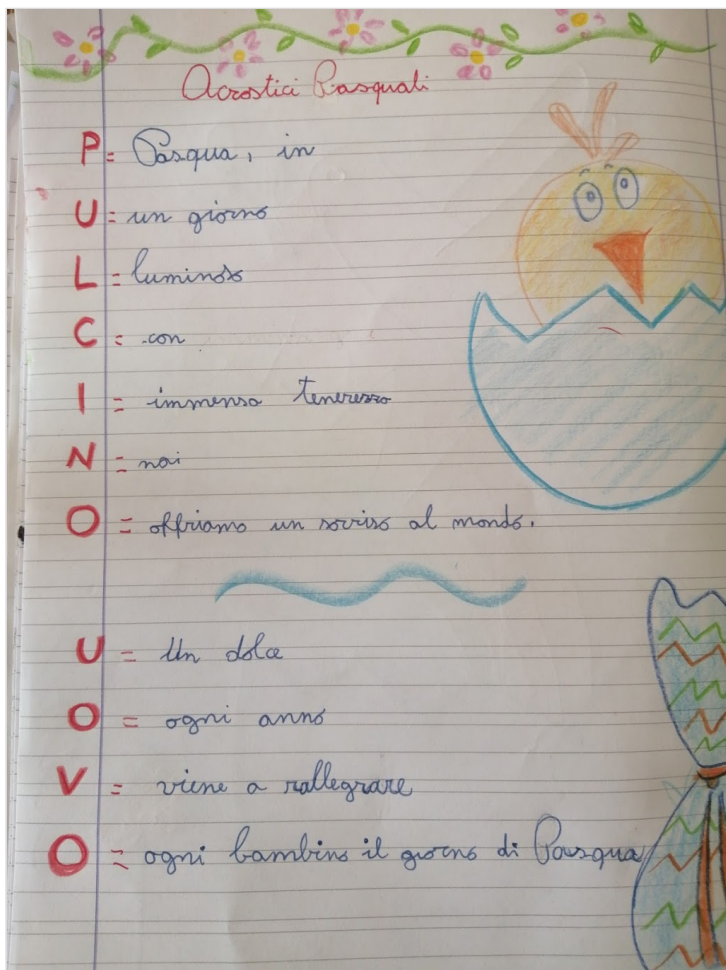 Acrostici Pasquali
P = Pasqua, in
U = un giorno
L = luminoso
C = con
I = immensa tenerezza
N = noi
O = offriamo un sorriso al mondo.
U = Un dolce
O = ogni anno
V = viene a rallegrare
O = ogni bambino il giorno di Pasqua